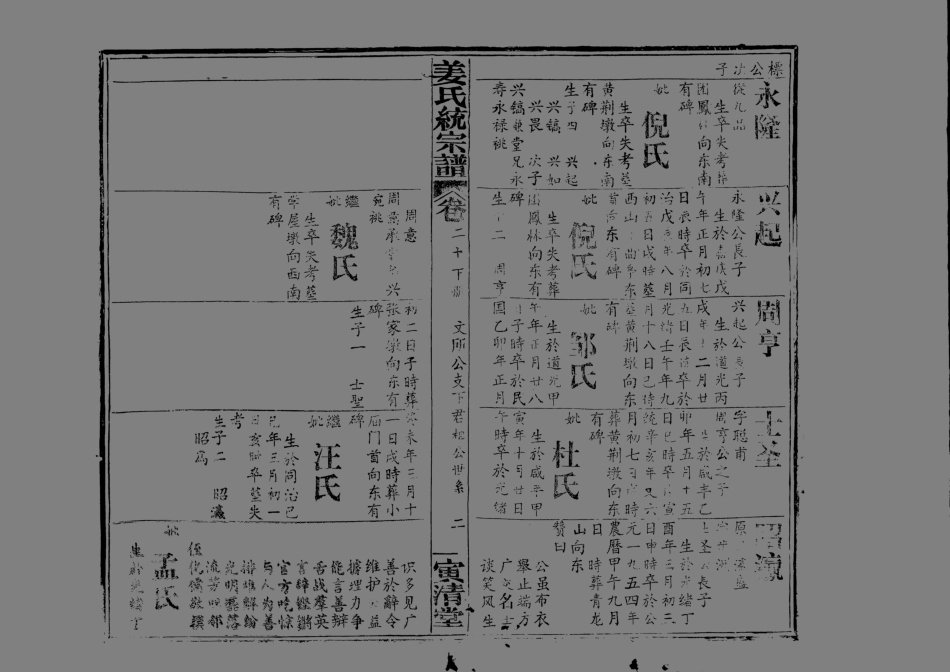 標公次子
永隆
從九品
生卒失考葬
团鳳林向东南
有碑
妣
倪氏
生卒失考墓
黄荆墩向东南
有碑
生子四 兴起
兴鎬 兴如
兴畏 次子
兴鎬兼堂兄永
寿永禄祧
兴起
永隆公長子
生於嘉慶戊
午年正月初七
日辰時卒於同
治戊辰年八月
初五日戌時墓
西山
首向东有碑
妣
倪氏
生卒失考葬
团鳳林向东有
碑
生子二 周亨
周意
周意承
兴
宛祧
繼
妣
魏氏
生卒失考墓
李屋墩向西南
有碑
周亨
兴起公長子
生於道光丙
戌年十二月廿
九日辰時卒於
光绪壬午年九
月十八日巳時
墓黄荆墩向东
有碑
妣
邹氏
生於道光甲
午年正月廿八
日子時卒於民
国乙卯年正月
初二日子時葬
张家墩向东有
碑
生子一 士聖
士圣
字聪甫
周亨公之子
生於咸丰乙
卯年五月十五
日巳時卒於宣
统辛亥年又六
月初七日 時
葬黄荆墩向东
有碑
妣
杜氏
生於咸丰甲
寅年十月廿日
午時卒於光绪
癸未年三月十
一日戌時葬小
石门首向东有
碑
繼
妣
汪氏
生於同治己
巳年三月初一
日亥時卒墓失
考
生子二 昭瀛
昭為
昭瀛
士圣公長子
生於光绪丁
酉年三月初三
日申時卒於公
元一九五四年
農曆甲午九月
日 時葬青龙
山向东
赞曰
公虽布衣
舉止端方
广交名士
谈笑风生
识多见广
善於辭令
维护公益
據理力争
能言善辯
舌战羣英
言辭鏗鏘
官方吃惊
与人为善
排难解纷
光明磊落
流芳
侄化儒敬撰
妣
孟氏
生於光绪丁
姜氏統宗譜
卷二十下
文所公支下君相公世系
二
寅清堂